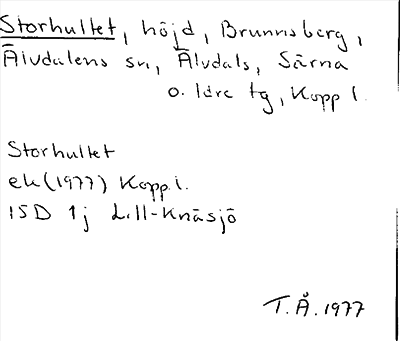 Storhultet, höjd, Brunnsberg,
Älvdalens sn, Älvdals, Särna
o. Idre tg, Kopp l.
Storhultet
ek (1977) Kopp l.
15D 1j Lill-Knäsjö
T.Å. 1977